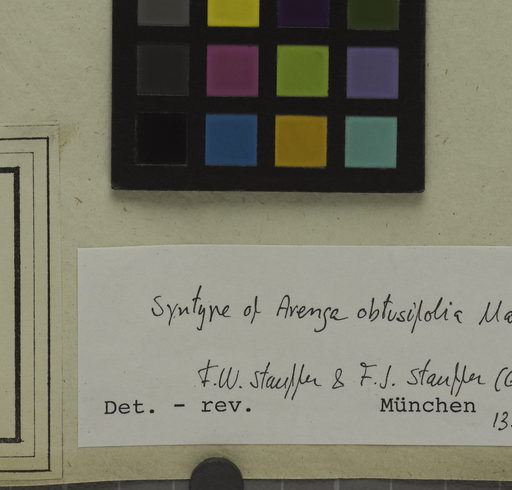 Syntype of Arenga obtusifolia Ma
F.W. Stauffer & F.J. Stauffer (G
Det. - rev. München
13.